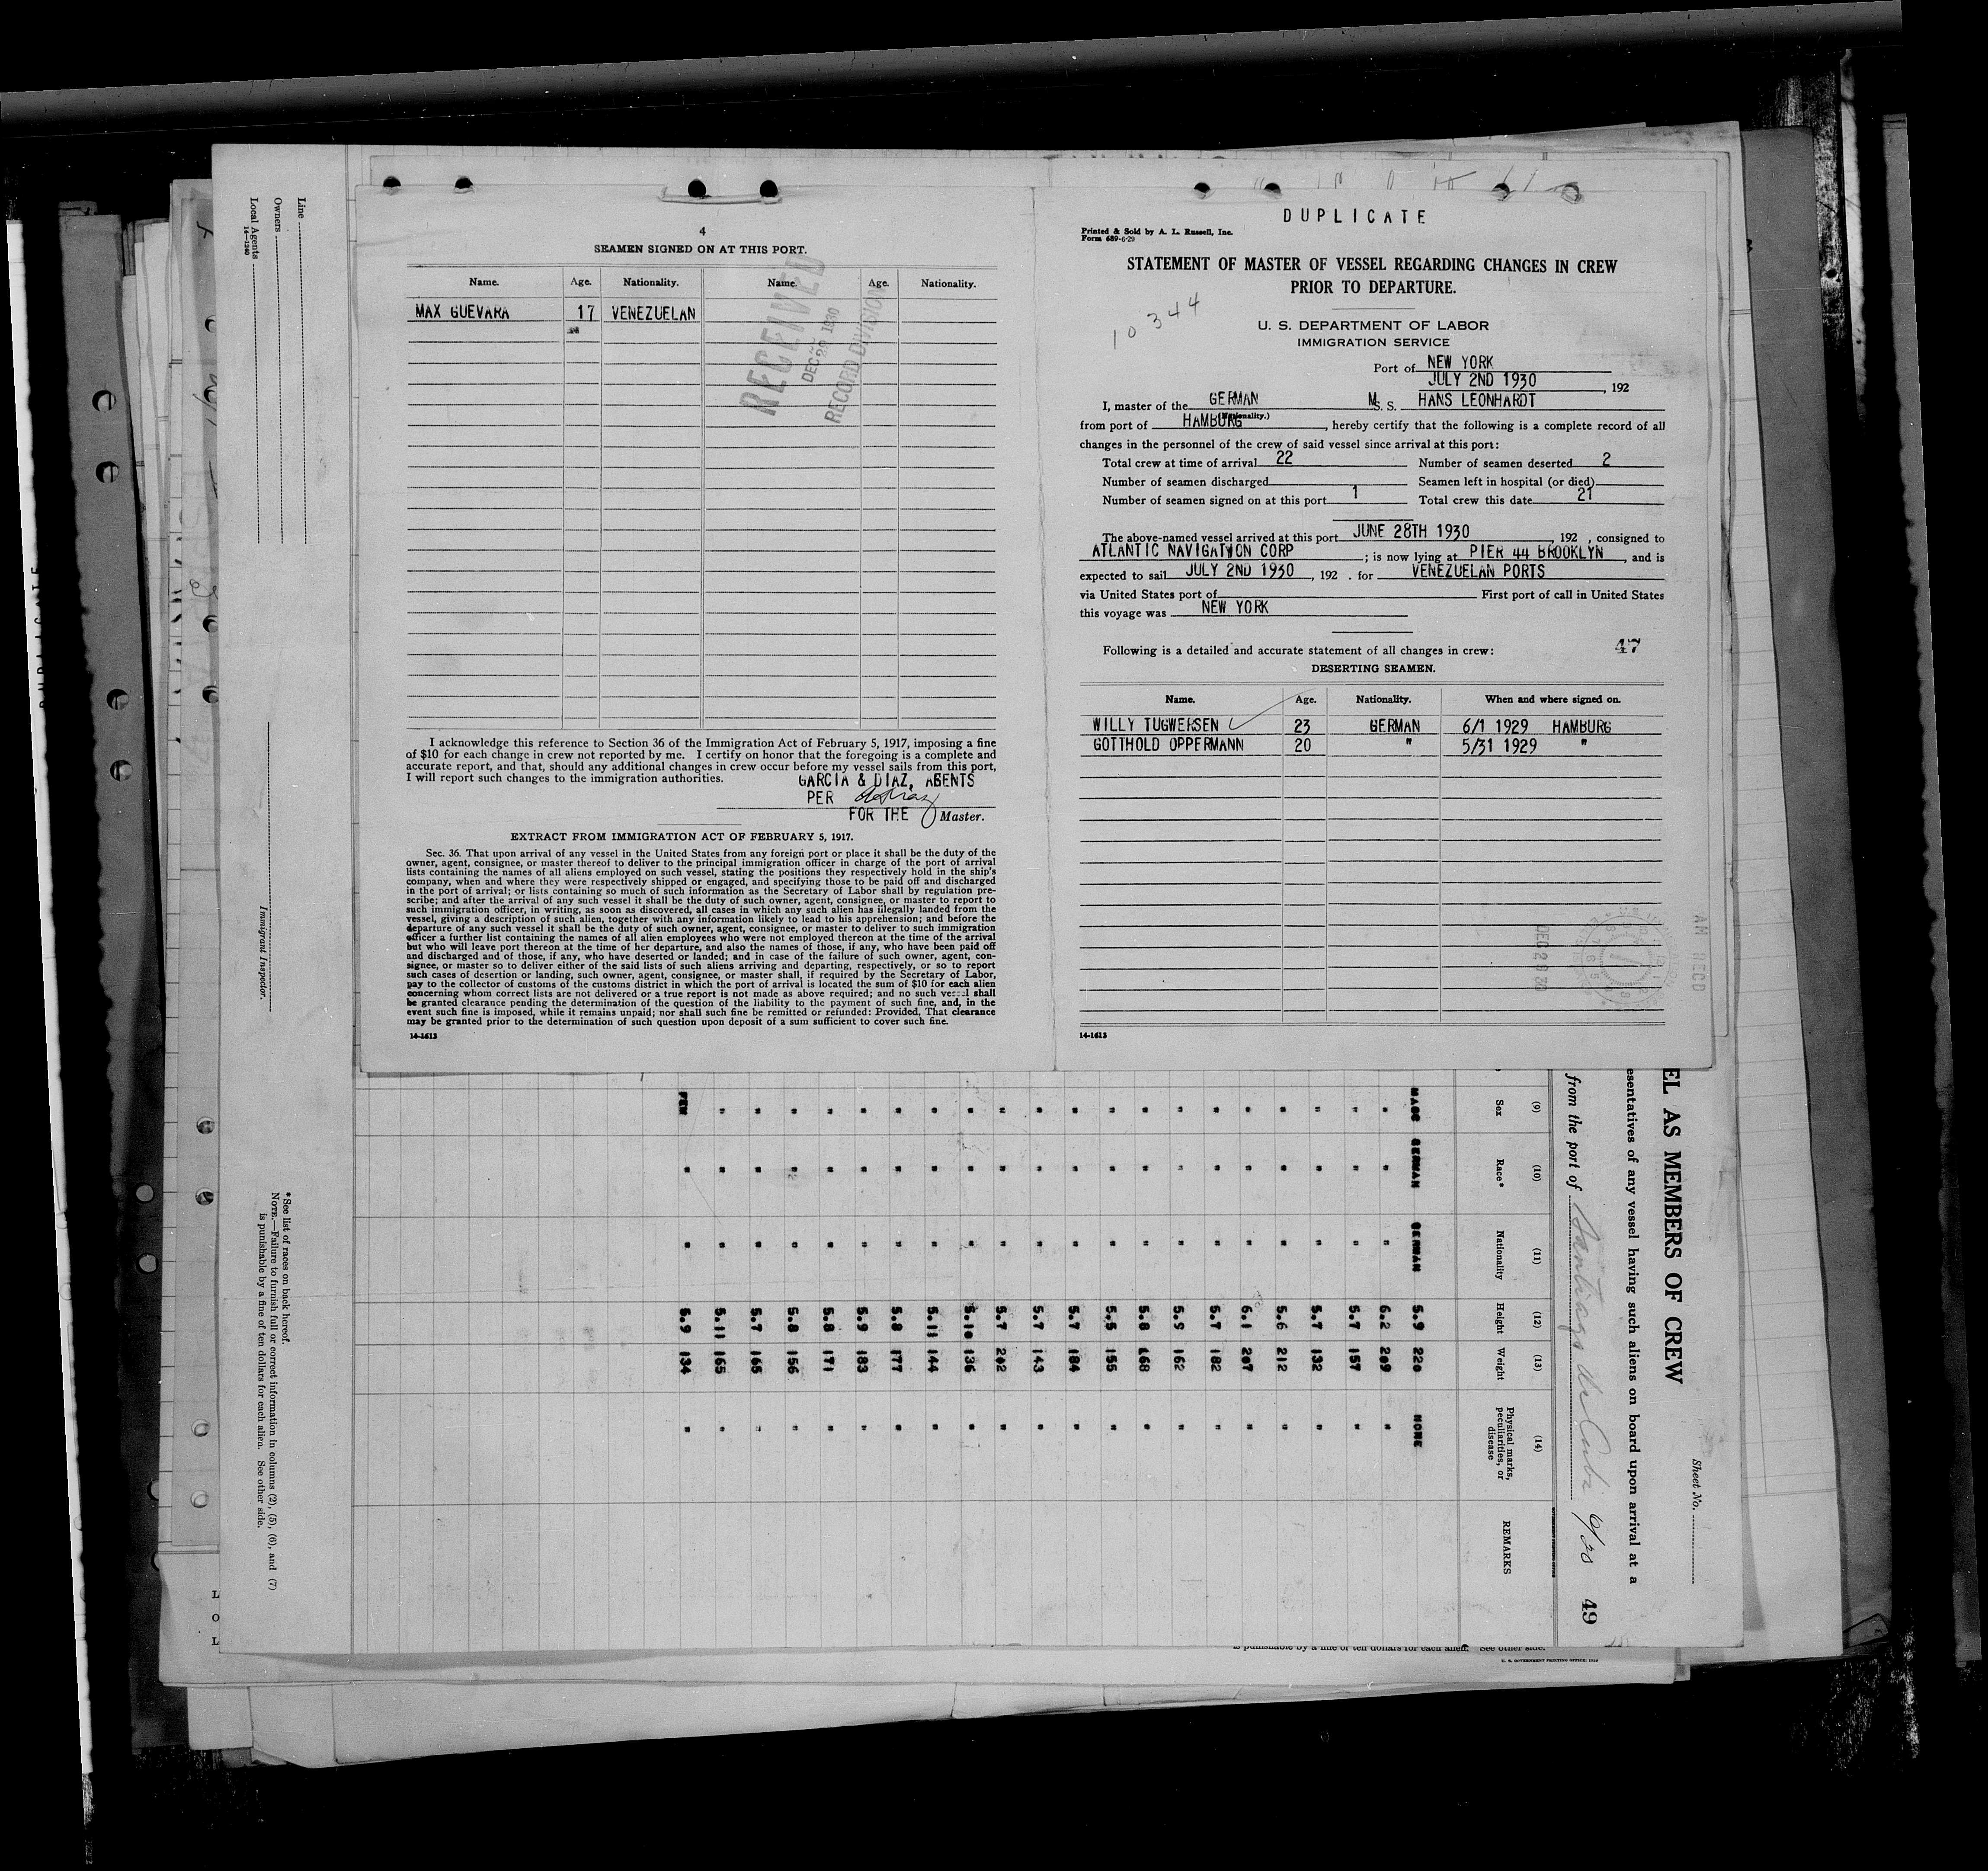 4
SEAMEN SIGNED ON AT THIS PORT.
Name. Age. Nationality. Name. Age. Nationality.
MAX GUEVARA 17 VENEZUELAN
RECEIVED
DEC 29 1930
RECORD DIVISION
I acknowledge this reference to Section 36 of the Immigration Act of February 5, 1917, imposing a fine
of $10 for each change in crew not reported by me. I certify on honor that the foregoing is a complete and
accurate report, and that, should any additional changes in crew occur before my vessel sails from this port,
I will report such changes to the immigration authorities.
GARCIA & DIAZ, AGENTS
PER
FOR THE Master.
EXTRACT FROM IMMIGRATION ACT OF FEBRUARY 5, 1917.
Sec. 36. That upon arrival of any vessel in the United States from any foreign port or place it shall be the duty of the
owner, agent, consignee, or master thereof to deliver to the principal immigration officer in charge of the port of arrival
lists containing the names of all aliens employed on such vessel, stating the positions they respectively hold in the ship's
company, when and where they were respectively shipped or engaged, and specifying those to be paid off and discharged
in the port of arrival; or lists containing so much of such information as the Secretary of Labor shall by regulation pre-
scribe; and after the arrival of any such vessel it shall be the duty of such owner, agent, consignee, or master to report to
such immigration officer, in writing, as soon as discovered, all cases in which any such alien has illegally landed from the
vessel, giving a description of such alien, together with any information likely to lead to his apprehension; and before the
departure of any such vessel it shall be the duty of such owner, agent, consignee, or master to deliver to such immigration
officer a further list containing the names of all alien employees who were not employed thereon at the time of the arrival
but who will leave port thereon at the time of her departure, and also the names of those, if any, who have been paid off
and discharged and of those, if any, who have deserted or landed; and in case of the failure of such owner, agent, con-
signee, or master so to deliver either of the said lists of such aliens arriving and departing, respectively, or so to report
such cases of desertion or landing, such owner, agent, consignee, or master shall, if required by the Secretary of Labor,
pay to the collector of customs of the customs district in which the port of arrival is located the sum of $10 for each alien
concerning whom correct lists are not delivered or a true report is not made as above required; and no such vessel shall
be granted clearance pending the determination of the question of the liability to the payment of such fine, and, in the
event such fine is imposed, while it remains unpaid; nor shall such fine be remitted or refunded: Provided, That clearance
may be granted prior to the determination of such question upon deposit of a sum sufficient to cover such fine.
14-1613
DUPLICATE
Printed & Sold by A. L. Russell, Inc.
Form 689-6-29
STATEMENT OF MASTER OF VESSEL REGARDING CHANGES IN CREW
PRIOR TO DEPARTURE.
10344
U. S. DEPARTMENT OF LABOR
IMMIGRATION SERVICE
Port of NEW YORK
JULY 2ND 1930, 192
I, master of the GERMAN M. S. S. HANS LEONHARDT
(Nationality.)
from port of HAMBURG, hereby certify that the following is a complete record of all
changes in the personnel of the crew of said vessel since arrival at this port:
Total crew at time of arrival 22 Number of seamen deserted 2
Number of seamen discharged Seamen left in hospital (or died)
Number of seamen signed on at this port 1 Total crew this date 21
The above-named vessel arrived at this port JUNE 28TH 1930, 192 , consigned to
ATLANTIC NAVIGATION CORP; is now lying at PIER 44 BROOKLYN, and is
expected to sail JULY 2ND 1930, 192 . for VENEZUELAN PORTS
via United States port of First port of call in United States
this voyage was NEW YORK
Following is a detailed and accurate statement of all changes in crew: 47
DESERTING SEAMEN.
Name. Age. Nationality. When and where signed on.
WILLY TUGWERSEN 23 GERMAN 6/1 1929 HAMBURG
GOTTHOLD OPPERMANN 20 " 5/31 1929 "
DEC 29 30
AM RECD
14-1613
Line
Owners
Local Agents
14-1240
Immigrant Inspector.
*See list of races on back hereof.
NOTE.—Failure to furnish full or correct information in columns (2), (5), (6), and (7)
is punishable by a fine of ten dollars for each alien. See other side.
Sheet No.
EL AS MEMBERS OF CREW
esentatives of any vessel having such aliens on board upon arrival at a
from the port of Santiago de Cuba 6/20 49
(9) (10) (11) (12) (13) (14)
Sex Race* Nationality Height Weight Physical marks, peculiarities, or disease REMARKS
MASC GERMAN GERMAN 5.9 220 NONE
" " " 6.2 209 "
" " " 5.7 157 "
" " " 5.7 132 "
" " " 5.6 212 "
" " " 6.1 207 "
" " " 5.7 182 "
" " " 5.9 162 "
" " " 5.8 168 "
" " " 5.5 155 "
" " " 5.7 184 "
" " " 5.7 143 "
" " " 5.7 202 "
" " " 5.10 136 "
" " " 5.11 144 "
" " " 5.8 177 "
" " " 5.9 183 "
" " " 5.8 171 "
" " " 5.8 156 "
" " " 5.7 165 "
" " " 5.11 165 "
FEM " " 5.9 134 "
is punishable by a fine of ten dollars for each alien. See other side.
U. S. GOVERNMENT PRINTING OFFICE: 1929